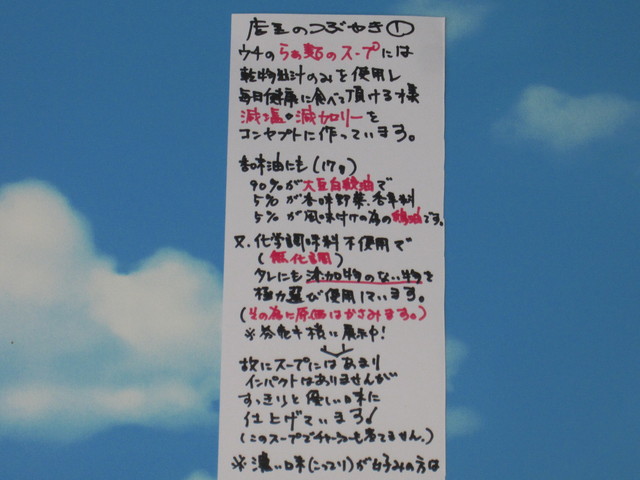 店主のつぶやき①
ウチのらぁ麺のスープには
乾物出汁のみを使用し
毎日健康に食べて頂ける様
減塩・減カロリーを
コンセプトに作っています。
香味油にも(17g)
90%が大豆白絞油で
5%が香味野菜、香辛料
5%が風味付けの為の鶏油です。
又、化学調味料不使用で
(無化調)
タレにも添加物のない物を
極力選び使用しています。
(その為に原価はかさみます。)
※券売キ横に展示中!
故にスープにはあまり
インパクトはありませんが
すっきりと優しい味に
仕上げています!
(このスープでチャーシューも煮てません。)
※濃い味(こってり)が好みの方は